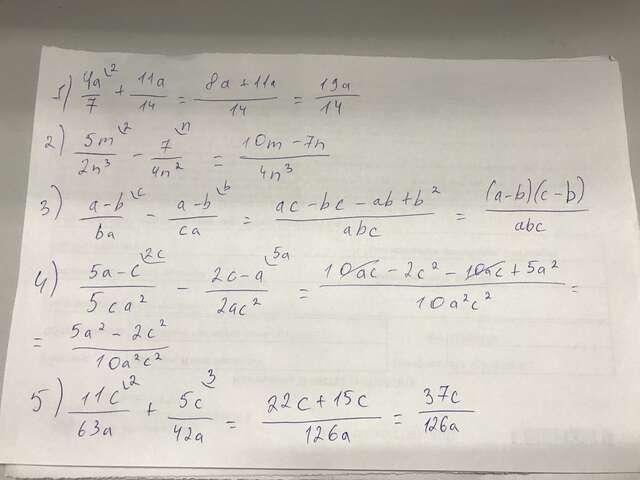 1) 4a/7 ⌞2 + 11a/14 = 8a + 11a/14 = 19a/14
2) 5m/2n³ ⌞2 - 7/4n² ⌞n = 10m - 7n/4n³
3) a-b/ba ⌞c - a-b/ca ⌞b = ac - bc - ab + b²/abc = (a-b)(c-b)/abc
4) 5a-c/5ca² ⌞2c - 2c-a/2ac² ⌞5a = 10ac - 2c² - 10ac + 5a²/10a²c² =
= 5a² - 2c²/10a²c²
5) 11c/63a ⌞2 + 5c/42a ⌞3 = 22c + 15c/126a = 37c/126a